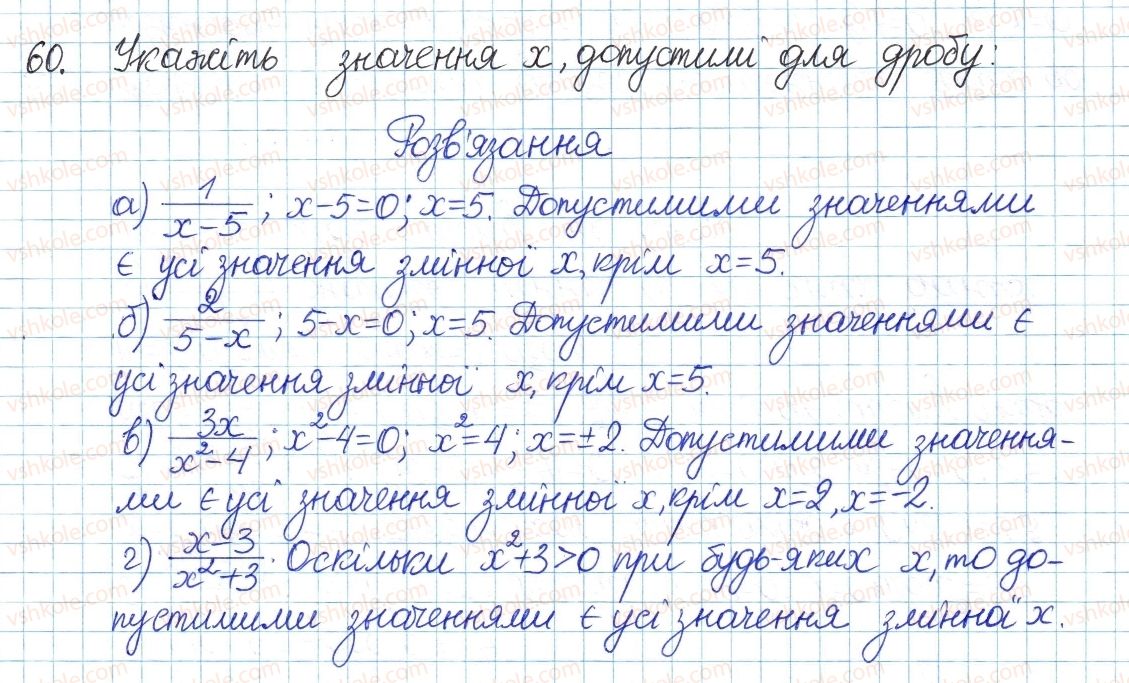 60. Укажіть значення x, допустимі для дробу:
Розв'язання
а) 1/(x-5); x-5=0; x=5. Допустимими значеннями
є усі значення змінної x, крім x=5.
б) 2/(5-x); 5-x=0; x=5. Допустимими значеннями є
усі значення змінної x, крім x=5.
в) 3x/(x²-4); x²-4=0; x²=4; x=±2. Допустимими значення-
ми є усі значення змінної x, крім x=2, x=-2.
г) (x-3)/(x²+3). Оскільки x²+3>0 при будь-яких x, то до-
пустимими значеннями є усі значення змінної x.